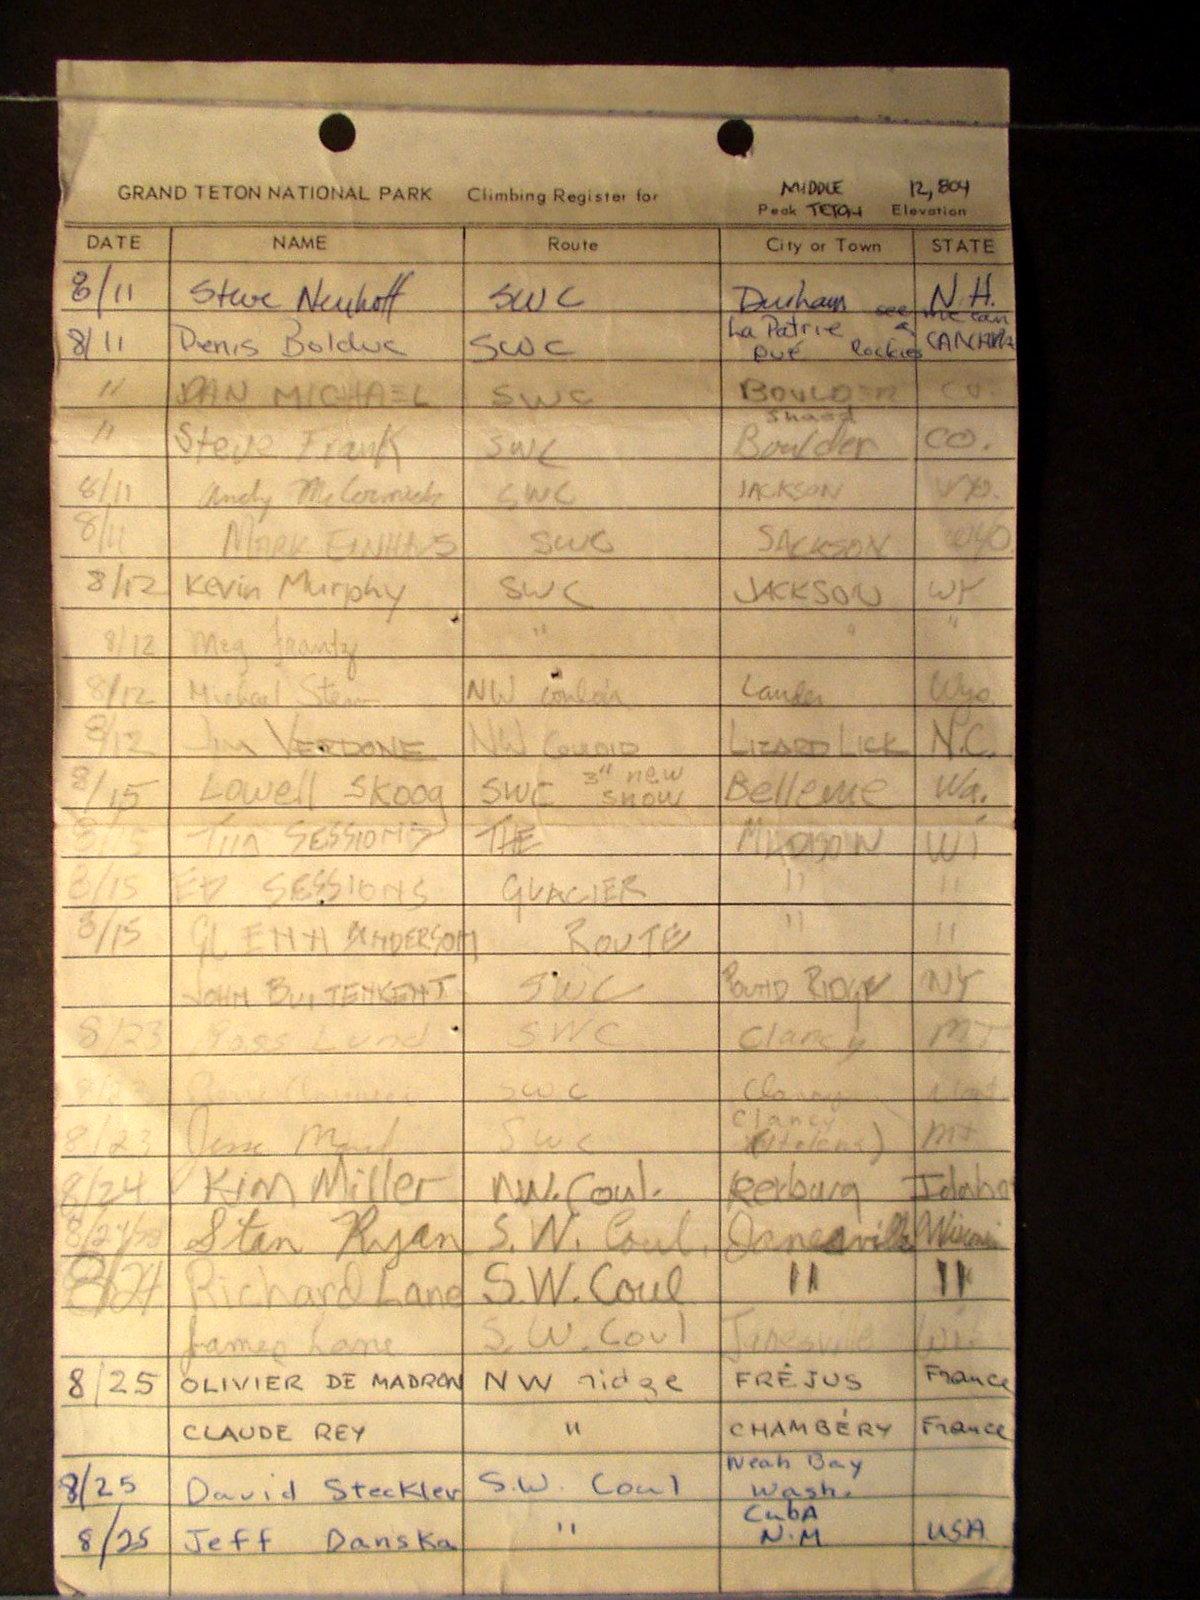 MIDDLE 12,804
GRAND TETON NATIONAL PARK Climbing Register for Peak TETON Elevation
DATE NAME Route City or Town STATE
8/11 Steve Neuhoff SWC Durham N.H.
8/11 Denis Bolduc SWC La Patrie CANADA
see the can
Rockies
" DAN MICHAEL SWC BOULDER CO.
" Steve Frank SWC Boulder CO.
8/11 Andy McCormick SWC JACKSON WYO.
8/11 MARK SWC JACKSON WYO.
8/12 Kevin Murphy SWC JACKSON WY
8/12 Meg Frantz " " "
8/12 Michael Stern NW couloir Lander Wyo.
8/12 JIM VERDONE NW COULOIR LIZARD LICK N.C.
8/15 Lowell Skoog SWC 3" new snow Bellevue Wa.
8/15 TIM SESSIONS THE MADISON WI
8/15 ED SESSIONS GLACIER " "
8/15 GLENN ANDERSON ROUTE " "
JOHN SWC POUND RIDGE NY
8/23 Ross Lund SWC Clancy MT
8/23 SWC Clancy Mont
8/23 Jesse SWC Clancy MT
8/24 Kim Miller N.W. Coul. Rexburg Idaho
8/24 Stan Ryan S.W. Coul. Janesville Wisconsin
8/24 Richard Lane S.W. Coul " "
James Lane S.W. Coul Janesville Wis.
8/25 OLIVIER DE MADRON NW ridge FRÉJUS France
CLAUDE REY " CHAMBÉRY France
8/25 David Steckler S.W. Coul Neah Bay Wash.
8/25 Jeff Danska " CubA N.M USA